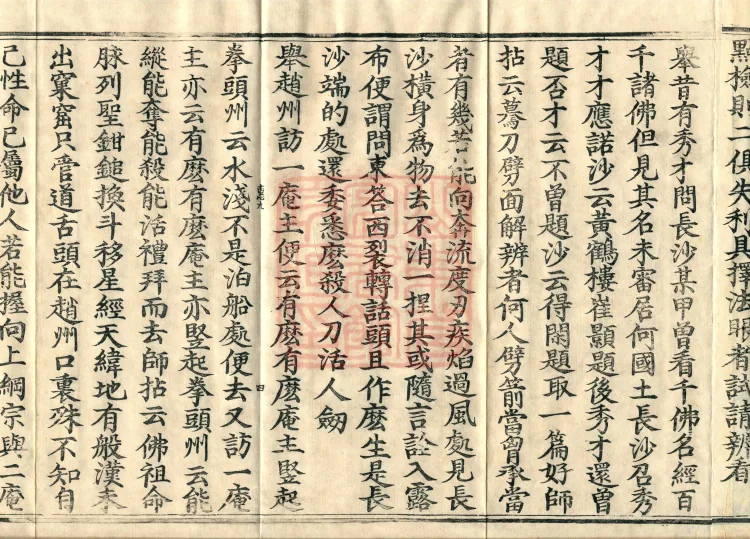 點撿則二俱失利具擇法眼者試請辨看
舉昔有秀才問長沙某甲曾看千佛名經百
千諸佛但見其名未審居何國土長沙召秀
才才應諾沙云黃鶴樓崔顥題後秀才還曾
題否才云不曾題沙云得閑題取一篇好師
拈云驀刀劈面解辨者何人劈箭當胷承當
者有幾若能向奔流度刃疾焰過風處見長
沙橫身爲物去不消一捏其或隨言詮入露
布便謂問東答西裂轉話頭且作麽生是長
沙端的處還委悉麽殺人刀活人劒
舉趙州訪一庵主便云有麽有麽庵主竪起
拳頭州云水淺不是泊船處便去又訪一庵
主亦云有麽有麽庵主亦竪起拳頭州云能
縱能奪能殺能活禮拜而去師拈云佛祖命
脉列聖鉗鎚換斗移星經天緯地有般漢未
出窠窟只管道舌頭在趙州口裏殊不知自
己性命已屬他人若能握向上綱宗與二庵